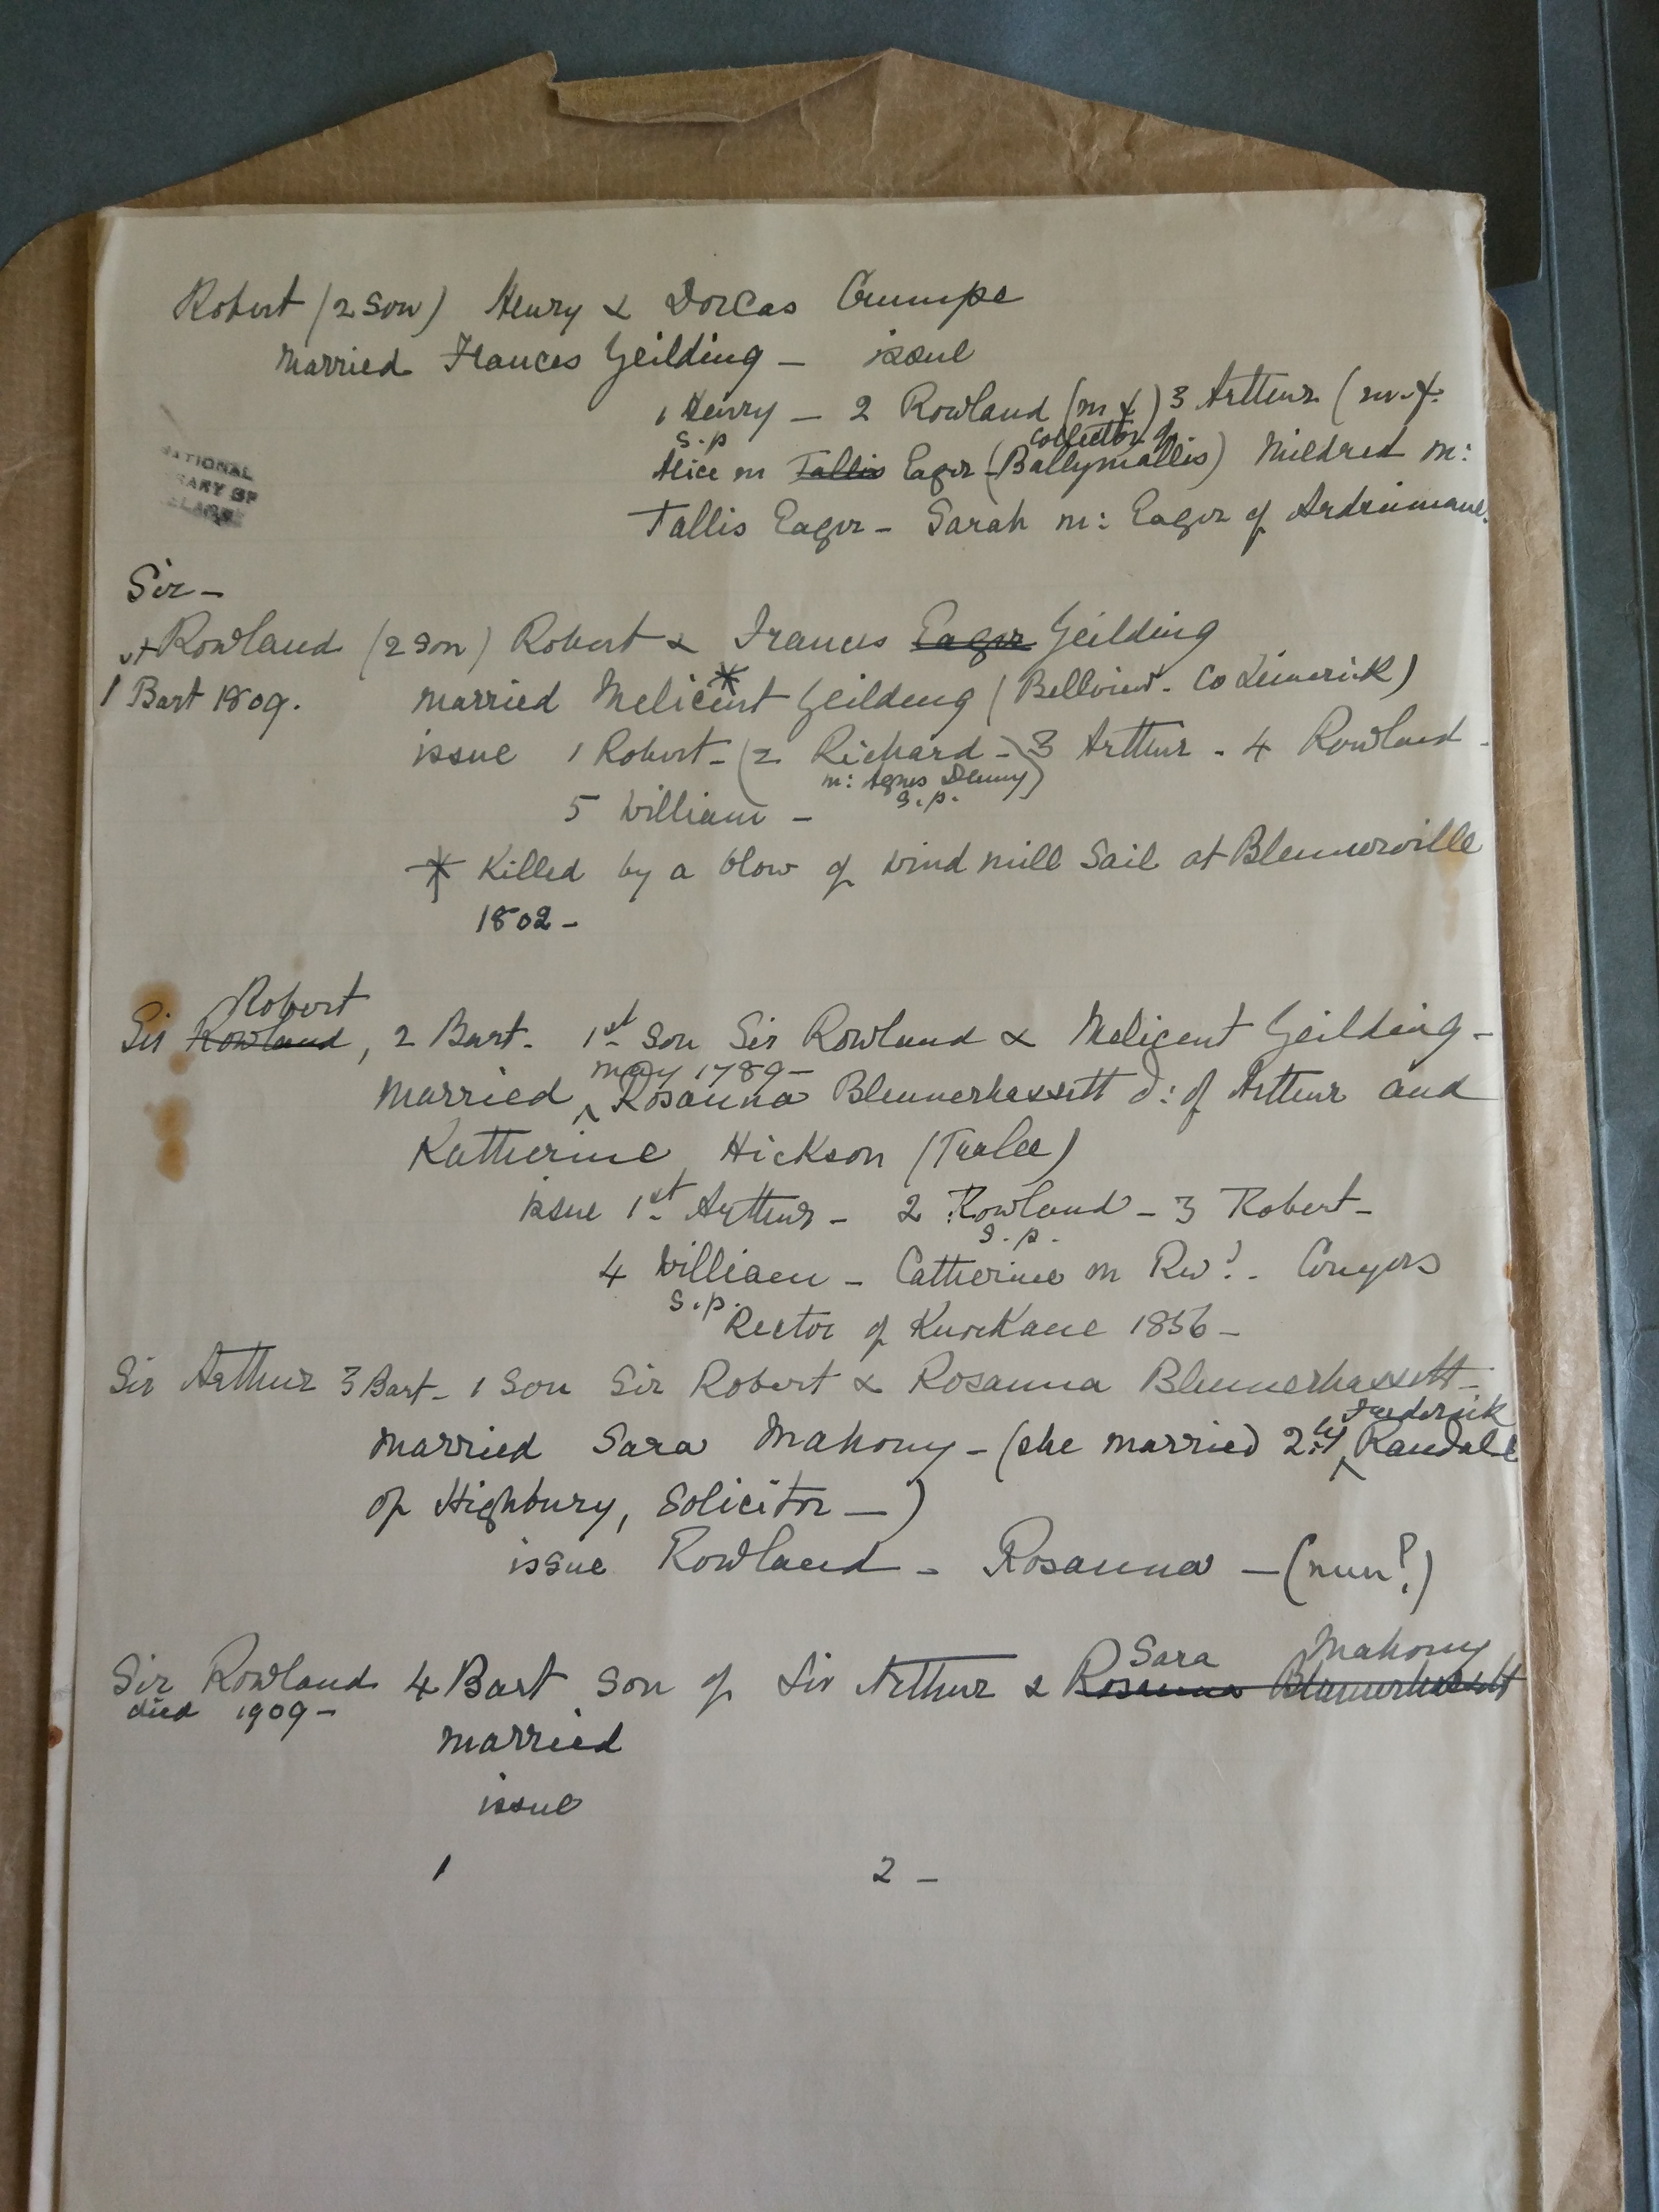 Robert (2 son) Henry & Dorcas Crumpe
married Frances Yeilding - issue
1 Henry - 2 Rowland (m &) 3 Arthur (m. &.
s.p collector of
Alice m Tallis Eager (Ballymallis) Mildred m:
Tallis Eager - Sarah m: Eager of
NATIONAL
LIBRARY OF
Sir -
Rowland (2 son) Robert & Frances Eager Yeilding
1 Bart 1809. married Melicent * Yeilding (Bellview. Co Limerick)
issue 1 Robert - (2 Richard -) 3 Arthur - 4 Rowland -
m: Agnes Denny)
s.p.
5 William -
* Killed by a blow of wind mill Sail at Blennerville
1802 -
Robert
Sir Rowland, 2 Bart. 1st Son Sir Rowland & Melicent Yeilding -
May 1789 -
married ^ Rosanna Blennerhassett d: of Arthur and
Katherine Hickson (Tralee)
issue 1st Arthur - 2 Rowland - 3 Robert -
s.p.
4 William - Catherine m Rev?. Conyers
s.p. Rector of 1856 -
Sir Arthur 3 Bart - 1 Son Sir Robert & Rosanna Blennerhassett -
Frederick
married Sara Mahony - (she married 2ly ^ Randall
of Highbury, Solicitor - )
issue Rowland - Rosanna - (nun?)
Sara Mahony
Sir Rowland 4 Bart Son of Sir Arthur & Rosanna Blennerhassett
died 1909 -
married
issue
1 2 -